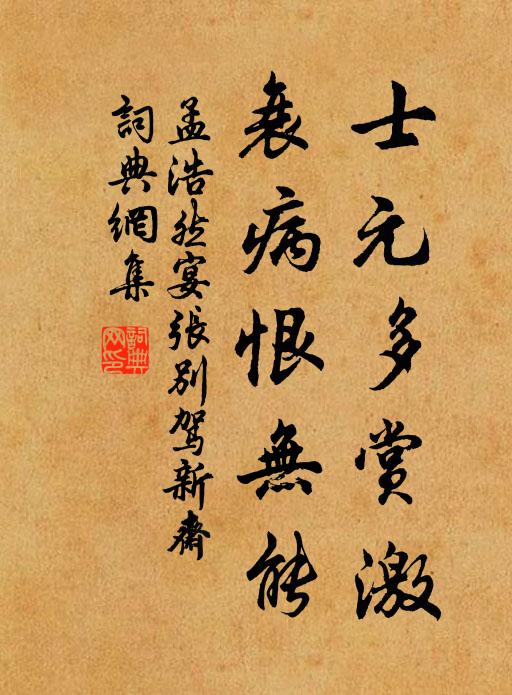 士元多賞激
衰病恨無能
孟浩然宴張別駕新齋
詞典網集
詞典網印